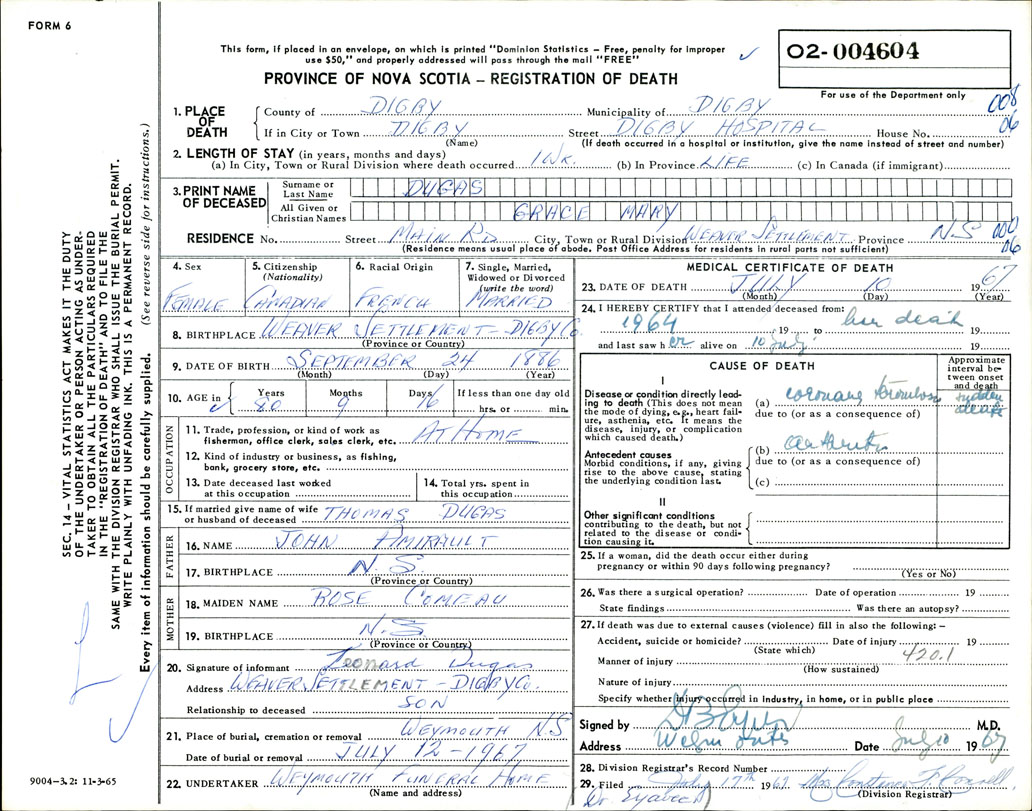 FORM 6
This form, if placed in an envelope, on which is printed "Dominion Statistics – Free, penalty for improper
use $50," and properly addressed will pass through the mail "FREE"
02-004604
PROVINCE OF NOVA SCOTIA – REGISTRATION OF DEATH
For use of the Department only
SEC. 14 – VITAL STATISTICS ACT MAKES IT THE DUTY
OF THE UNDERTAKER OR PERSON ACTING AS UNDER-
TAKER TO OBTAIN ALL THE PARTICULARS REQUIRED
IN THE "REGISTRATION OF DEATH" AND TO FILE THE
SAME WITH THE DIVISION REGISTRAR WHO SHALL ISSUE THE BURIAL PERMIT.
WRITE PLAINLY WITH UNFADING INK. THIS IS A PERMANENT RECORD.
Every item of information should be carefully supplied. (See reverse side for instructions.)
1. PLACE OF DEATH
County of DIGBY Municipality of DIGBY 008
If in City or Town DIGBY Street DIGBY HOSPITAL House No. 06
(Name) (If death occurred in a hospital or institution, give the name instead of street and number)
2. LENGTH OF STAY (in years, months and days)
(a) In City, Town or Rural Division where death occurred 1 WK. (b) In Province LIFE (c) In Canada (if immigrant)
3. PRINT NAME OF DECEASED
Surname or Last Name DUGAS
All Given or Christian Names GRACE MARY
RESIDENCE No. Street MAIN RD City, Town or Rural Division WEAVER SETTLEMENT Province N.S 000
(Residence means usual place of abode. Post Office Address for residents in rural parts not sufficient) 06
4. Sex FEMALE
5. Citizenship (Nationality) CANADIAN
6. Racial Origin FRENCH
7. Single, Married, Widowed or Divorced (write the word) MARRIED
8. BIRTHPLACE WEAVER SETTLEMENT – DIGBY Co.
(Province or Country)
9. DATE OF BIRTH SEPTEMBER 24 1886
(Month) (Day) (Year)
10. AGE in Years 80 Months 9 Days 16 If less than one day old hrs. or min.
OCCUPATION
11. Trade, profession, or kind of work as
fisherman, office clerk, sales clerk, etc. AT HOME
12. Kind of industry or business, as fishing,
bank, grocery store, etc.
13. Date deceased last worked
at this occupation
14. Total yrs. spent in
this occupation
15. If married give name of wife
or husband of deceased THOMAS DUGAS
FATHER
16. NAME JOHN AMIRAULT
17. BIRTHPLACE N.S
(Province or Country)
MOTHER
18. MAIDEN NAME ROSE COMEAU
19. BIRTHPLACE N.S
(Province or Country)
20. Signature of informant Leonard Dugas
Address WEAVER SETTLEMENT – DIGBY Co.
Relationship to deceased SON
21. Place of burial, cremation or removal WEYMOUTH N.S
Date of burial or removal JULY 12-1967
22. UNDERTAKER WEYMOUTH FUNERAL HOME
(Name and address)
9004–3.2: 11-3-65
MEDICAL CERTIFICATE OF DEATH
23. DATE OF DEATH JULY 10 1967
(Month) (Day) (Year)
24. I HEREBY CERTIFY that I attended deceased from:
1964 , 19 to her death 19
and last saw her alive on 10 July 19
CAUSE OF DEATH
Approximate interval between onset and death
I
Disease or condition directly lead-
ing to death (This does not mean
the mode of dying, e.g., heart fail-
ure, asthenia, etc. It means the
disease, injury, or complication
which caused death.)
(a) coronary sudden death
due to (or as a consequence of)
Antecedent causes
Morbid conditions, if any, giving
rise to the above cause, stating
the underlying condition last.
(b)
due to (or as a consequence of)
(c)
II
Other significant conditions
contributing to the death, but not
related to the disease or condi-
tion causing it.
25. If a woman, did the death occur either during
pregnancy or within 90 days following pregnancy?
(Yes or No)
26. Was there a surgical operation? Date of operation 19
State findings Was there an autopsy?
27. If death was due to external causes (violence) fill in also the following: –
Accident, suicide or homicide? Date of injury 19
(State which) 420.1
Manner of injury
(How sustained)
Nature of injury
Specify whether injury occurred in Industry, in home, or in public place
Signed by M.D.
Address Date July 10 1967
28. Division Registrar's Record Number
29. Filed July 17th 1967
(Division Registrar)